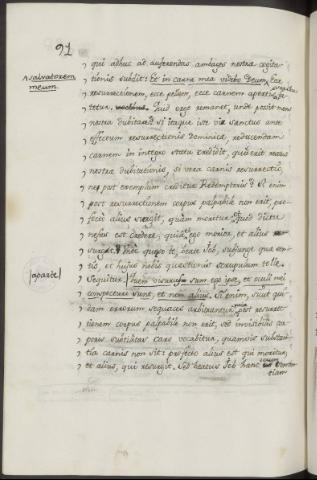 91
qui adhuc ad auferendas ambages nostræ cogita
tionis subdit: Et in carne mea videbo Deum, Ecce
salvatorem
meum.
resurrectionem, ecce pellem, ecce carnem aperte
tetur, Quid ergo remanet, unde possit mens
nostra dubitare? si itaque iste vir sanctus ante
effectum resurrectionis Dominicæ, reducendam
carnem in integro statu credidit, quis erit reatus
nostræ dubitationis, si vera carnis resurrectio
nec post exemplum creditur Redemptoris? Si enim
post resurrectionem corpus palpabile non erit, pro
fecto alius surgit, quam moritur, quod dictu
nefas est credere; quia ego morior, et alius
surgat. Unde quæso te, beate Job, subjunge quæ sen
tis, et hujus nobis quæstionis scrupulum tolle.
Sequitur.
aparte
Quem visurus sum ego ipse, et oculi mei
conspecturi sunt, et non alius. Si enim, sicut qui
dam errorum sequaces arbitrantur, post resurrec
tionem corpus palpabile non erit, sed invisibilis cor
poris subtilitas caro vocabitur, quamvis substan
tia carnis non sit: profecto alius est qui moritur,
et alius, qui resurgit. Sed beatus Job hanc